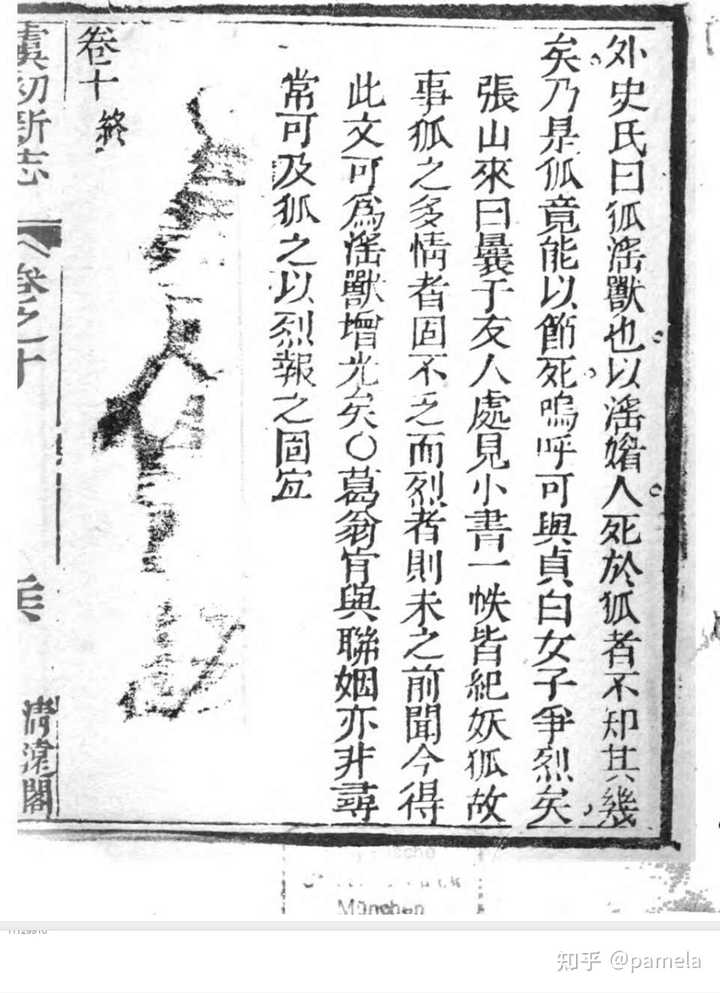 外史氏曰狐淫獸也以淫媚人死於狐者不知其幾
矣乃是狐竟能以節死嗚呼可與貞白女子爭烈矣
張山來曰曩于友人處見小書一帙皆紀妖狐故
事狐之多情者固不乏而烈者則未之前聞今得
此文可爲淫獸增光矣〇葛翁肯與聯姻亦非尋
常可及狐之以烈報之固宜
卷十 終
虞初新志
卷之十
清遠閣
München
知乎 @pamela